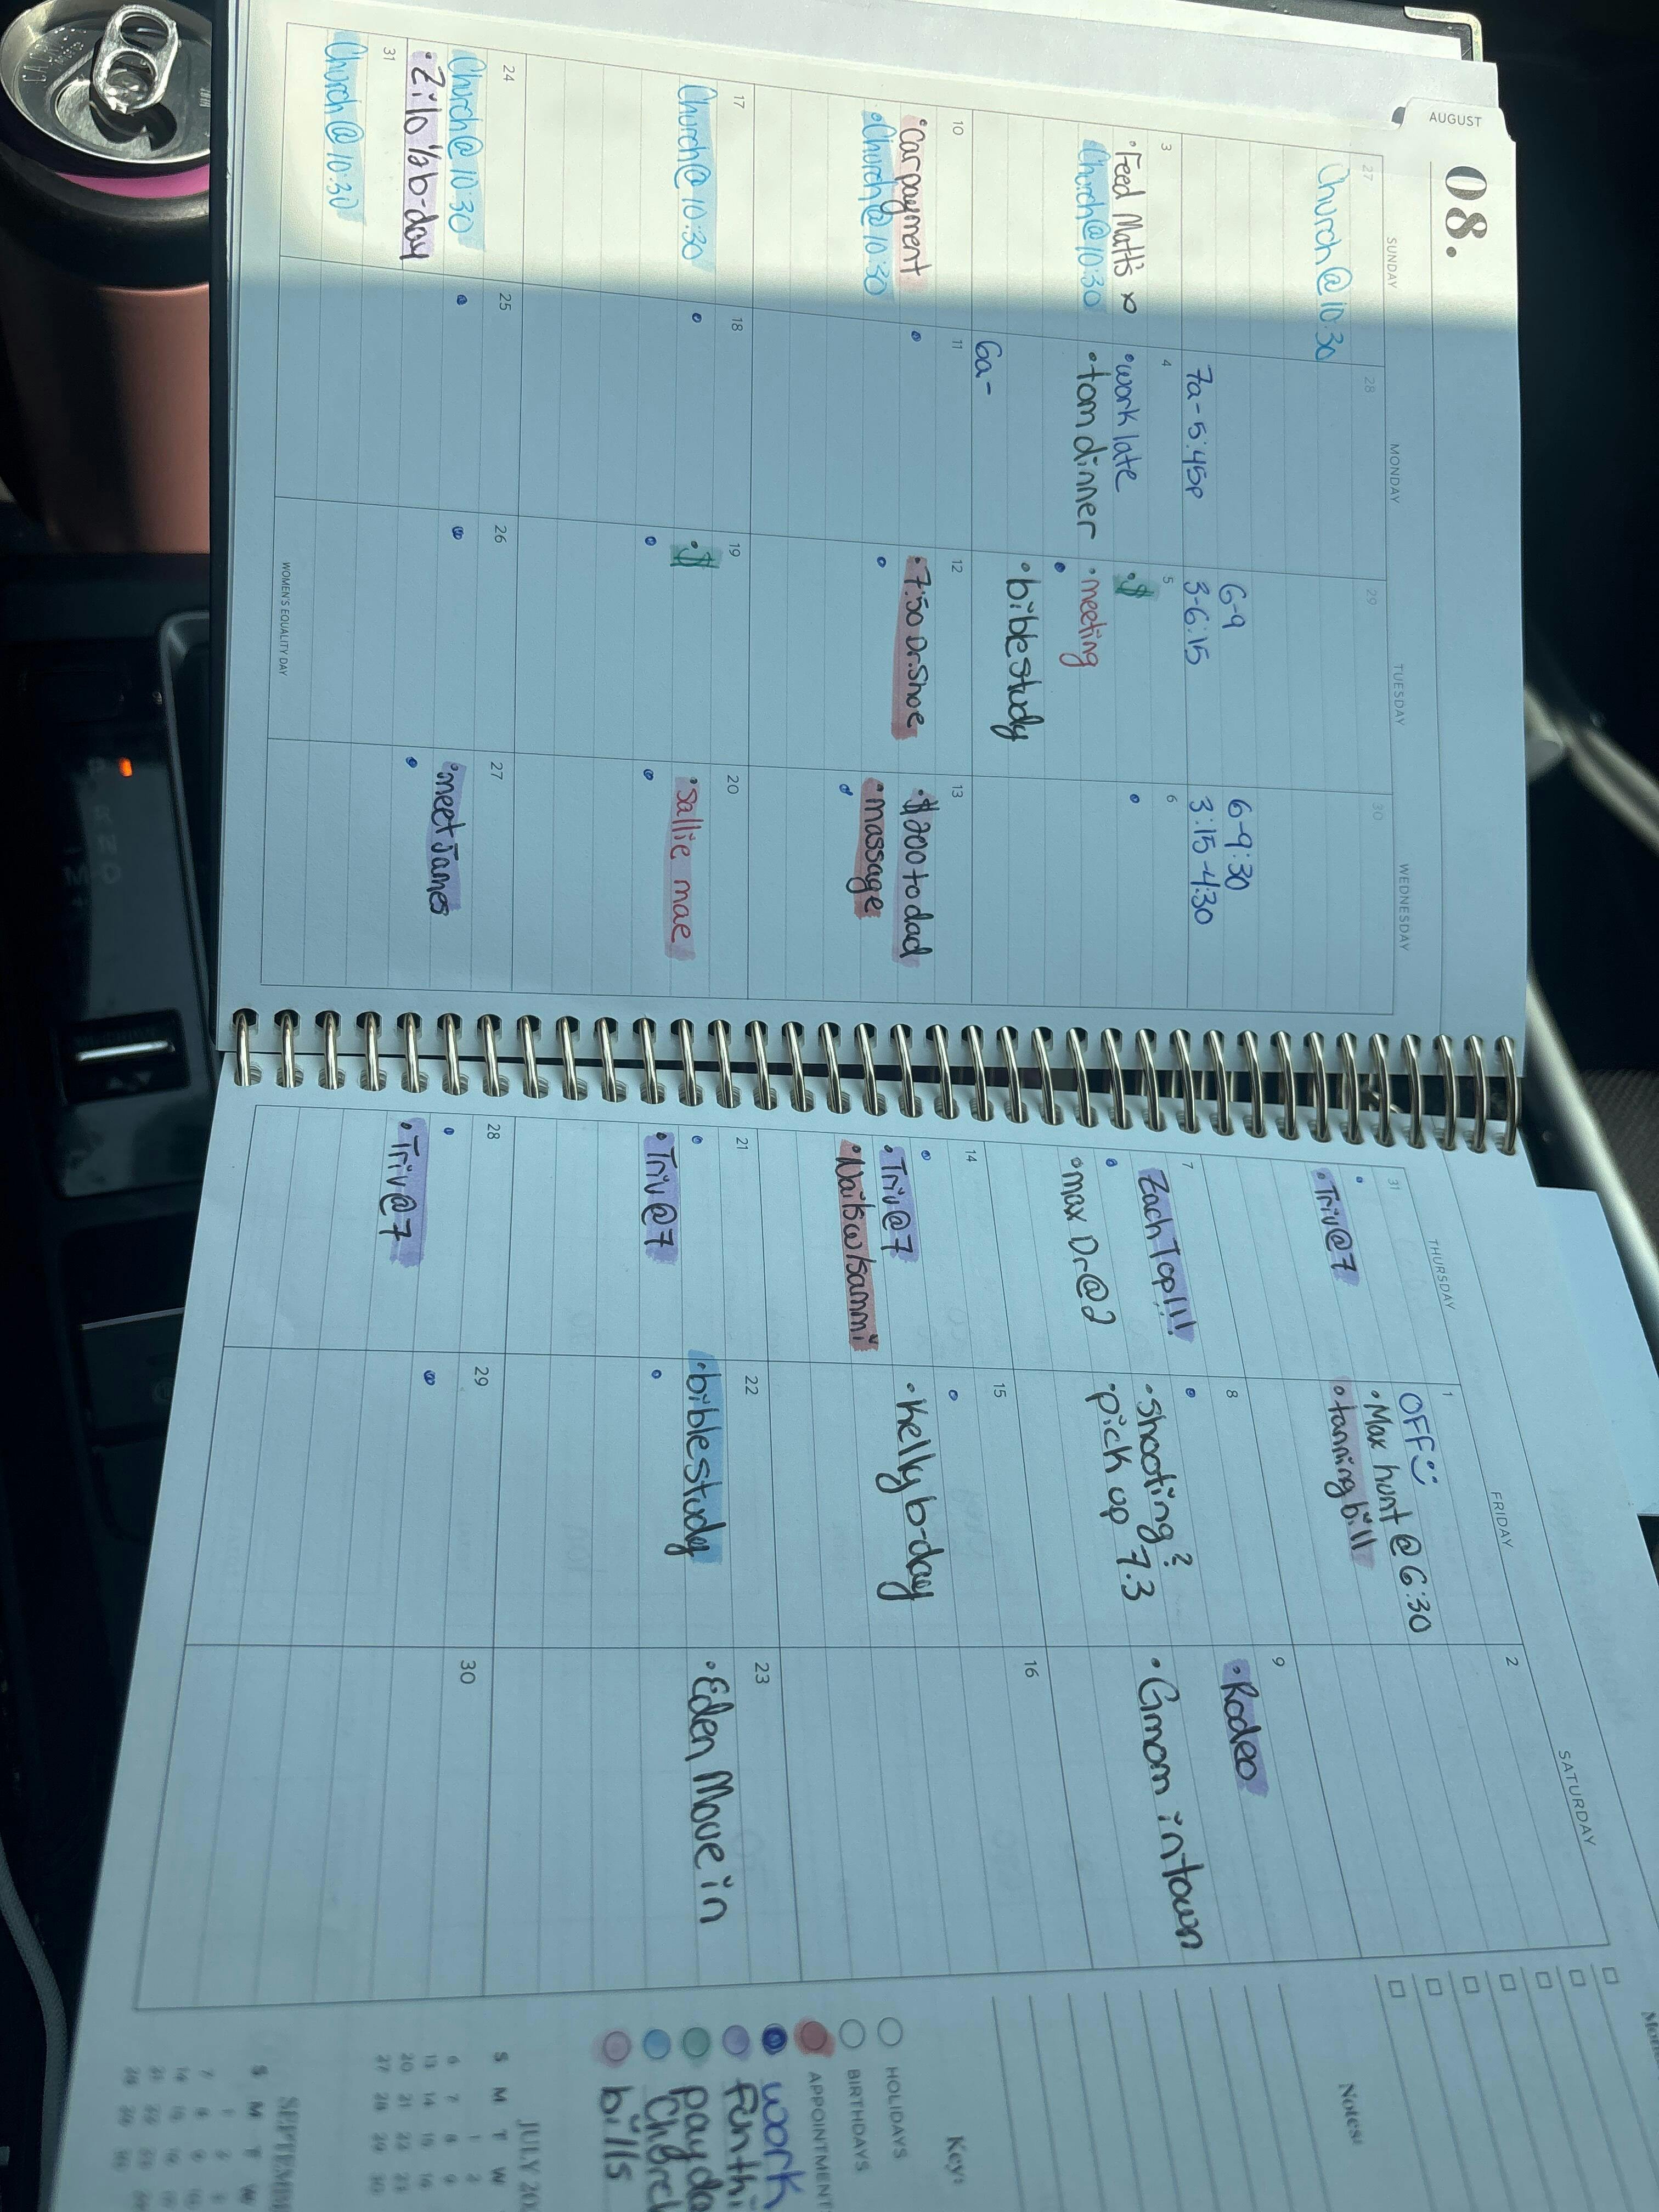 AUGUST
08.
SUNDAY
MONDAY
TUESDAY
WEDNESDAY
THURSDAY
FRIDAY
SATURDAY
27
Church@10:30
28
7a-5:45p
29
6-9
3-6:15
30
6-9:30
3:15-4:30
31
•Triv@7
1
OFF
•Max hunt @6:30
•tanning bill
2
3
•Feed Matt's
Church@10:30
4
•work late
•tom dinner
6a-
5
•$
•meeting
•bible study
6
7
Zach Top!!!
•max Dr@2
8
•Shooting?
•pick up 7.3
9
•Rodeo
•Gmom in town
10
•Car payment
•Church@10:30
11
12
•7:50 Dr.Shoe
13
•$200 to dad
•massage
14
•Triv@7
•Nails w/sammi
15
•Kelly b-day
16
17
Church@10:30
18
19
•$
20
•sallie mae
21
•Triv@7
22
•bible study
23
•Eden Move in
24
Church@10:30
•Zilo ½ b-day
31
Church@10:30
25
26
WOMEN'S EQUALITY DAY
27
•meet James
28
•Triv@7
29
30
Notes:
Key:
HOLIDAYS
BIRTHDAYS
APPOINTMENT
work
fun thi
payda
Church
bills
JULY 20
S M T W
1 2
6 7 8 9
13 14 15 16
20 21 22 23
27 28 29 30
SEPTEMB
S M T W